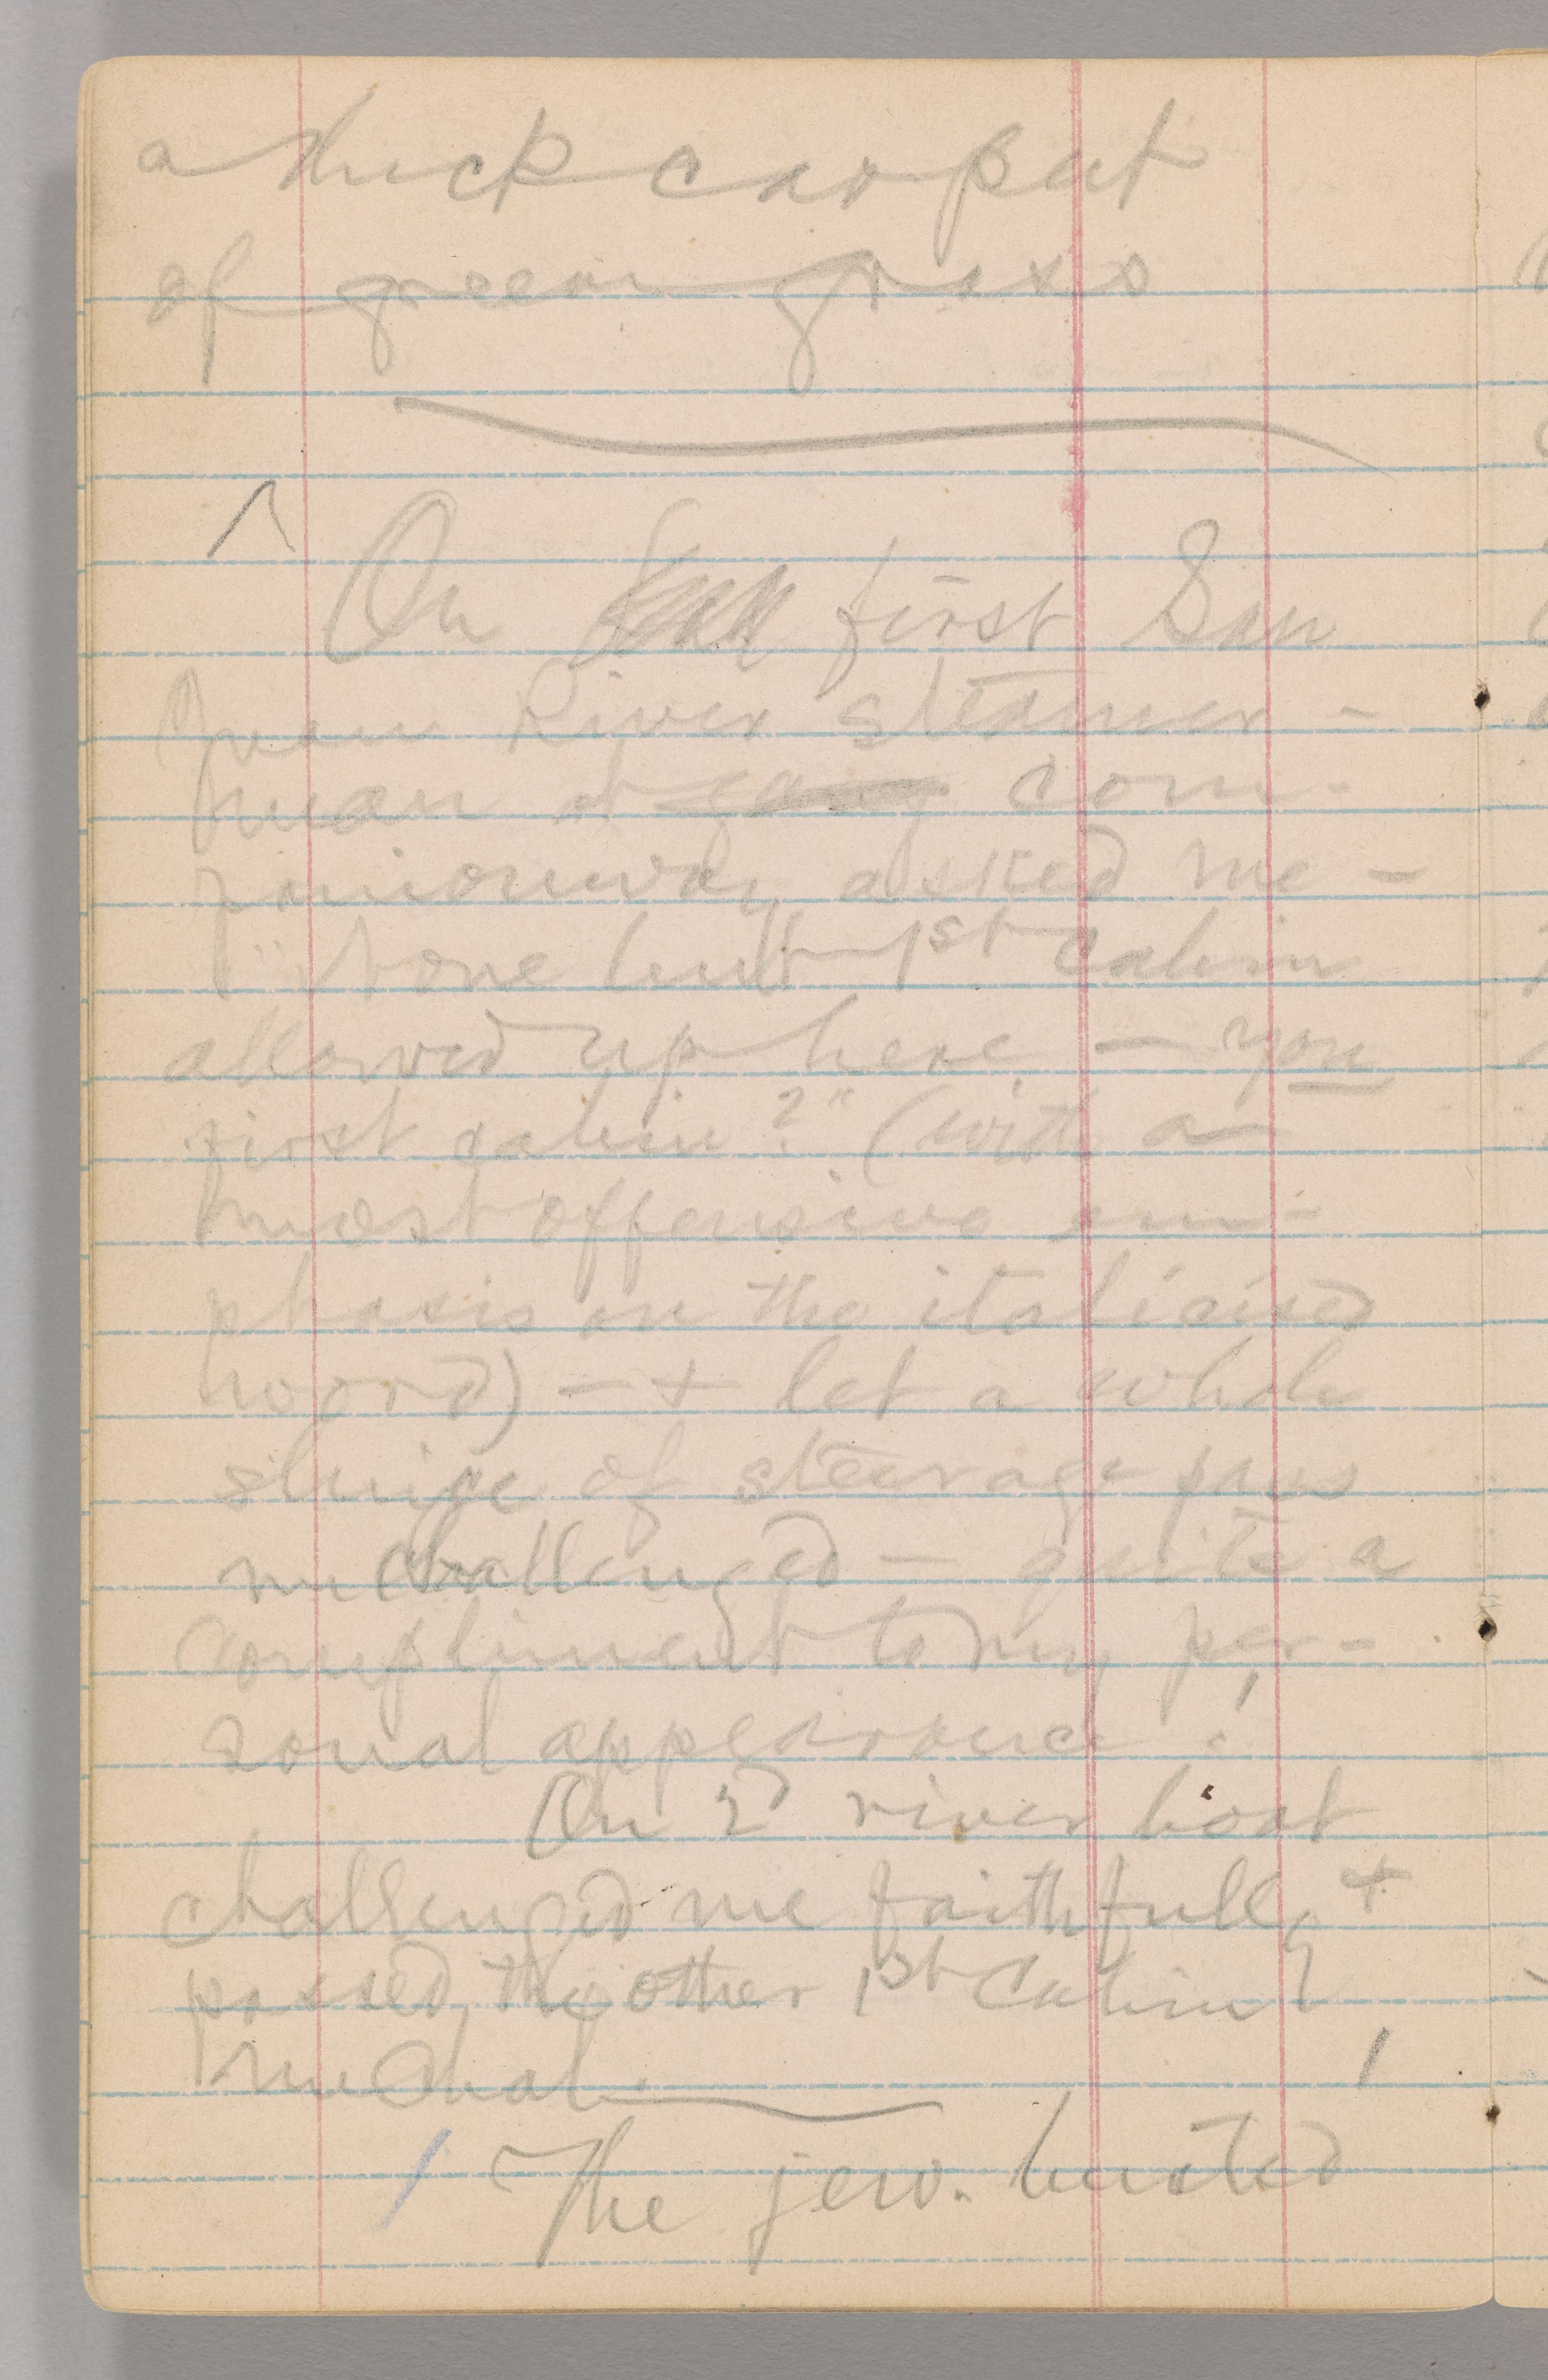 a thick carpet
of green grass
On first San
Juan River steamer -
man at com-
panionway asked me -
"None but 1st cabin
allowed up here - you
first cabin?" (with a
most offensive em-
phasis on the italicised
word) - + let a whole
sluice of steerage pass
unchallenged - quite a
compliment to my per-
sonal appearance!
On 2d river boat
challenged me faithfully +
passed the other 1st cabin
unchal.
The jew. busted